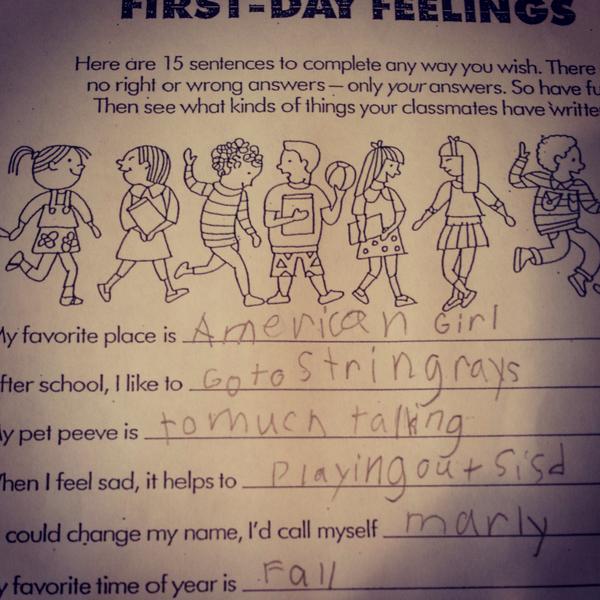 FIRST-DAY FEELINGS
Here are 15 sentences to complete any way you wish. There
no right or wrong answers — only your answers. So have fu
Then see what kinds of things your classmates have writte
My favorite place is American Girl
fter school, I like to Go to Stringrays
y pet peeve is tomuch talking
hen I feel sad, it helps to Playing out Sisd
could change my name, I'd call myself marly
y favorite time of year is Fall